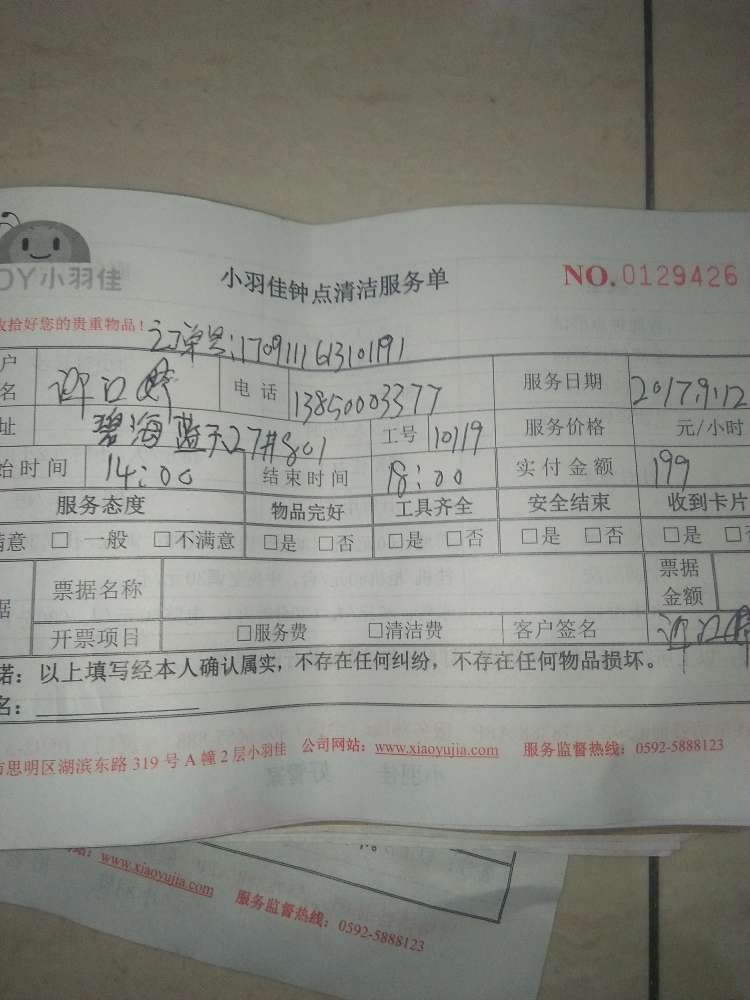 OY小羽佳
小羽佳钟点清洁服务单
NO.0129426
收拾好您的贵重物品！
订单号:170911163101191
户
名
电话 13850003377
服务日期 2017.9.12
址 碧海蓝天27#801
工号 10119
服务价格 元/小时
始时间 14:00
结束时间 18:00
实付金额 199
服务态度 物品完好 工具齐全 安全结束 收到卡片
满意 □ 一般 □不满意 □是 □否 □是 □否 □是 □否 □是 □否
据 票据名称 票据
金额
开票项目 □服务费 □清洁费 客户签名
诺：以上填写经本人确认属实，不存在任何纠纷，不存在任何物品损坏。
名：
市思明区湖滨东路 319 号 A 幢 2 层小羽佳 公司网站：www.xiaoyujia.com 服务监督热线：0592-5888123
站：www.xiaoyujia.com 服务监督热线：0592-5888123